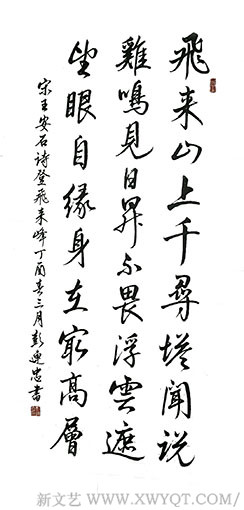 飛来山上千尋塔聞説
雞鳴見日昇不畏浮雲遮
望眼自緣身在最高層
宋王安石詩登飛来峰丁酉春三月彭忠書
新文艺 WWW.XWYQT.COM/